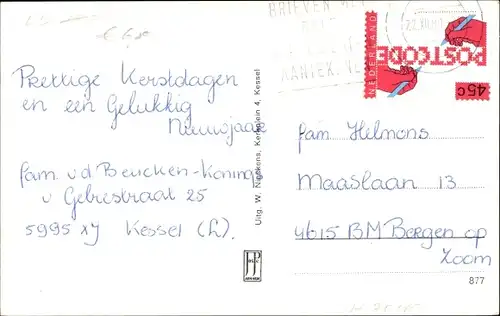 BRIEVEN
Prettige Kerstdagen
en een Gelukkig
Nieuwjaar
fam. v.d Beucken-Koning
v Gebrestraat 25
5995 XJ Kessel (L).
Uitg. W. Nijskens, Kerkplein 4, Kessel
NEDERLAND
POSTCODE
45c
fam Helmons
Maaslaan 13
4615 BM Bergen op
Zoom
877